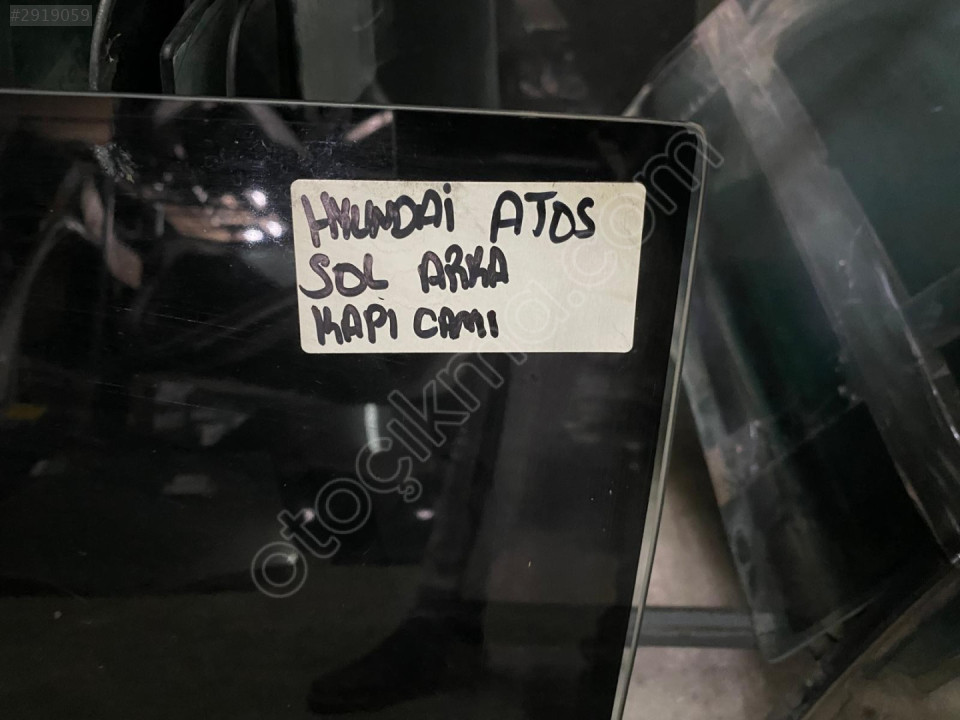 #2919059
HYUNDAİ ATOS
SOL ARKA
KAPİ CAMI
otoçıkma.com